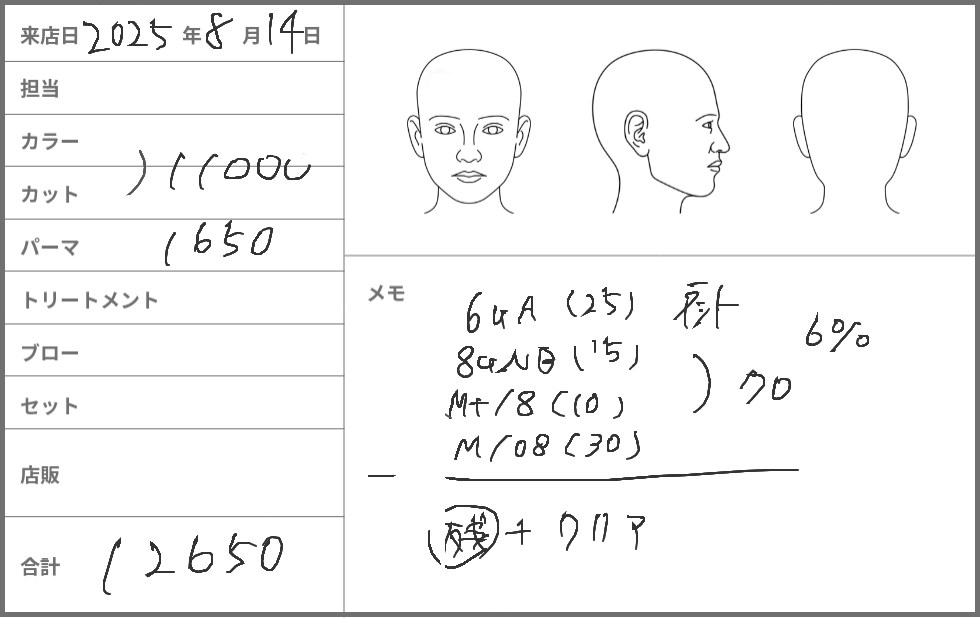 来店日 2025 年 8 月 14 日
担当
カラー
カット
) 11000
パーマ 1650
トリートメント
ブロー
セット
店販
合計 12650
メモ
64A (25)
6%
84NB (15)
M+/8 (10) ) 70
M/08 (30)
+ クリア